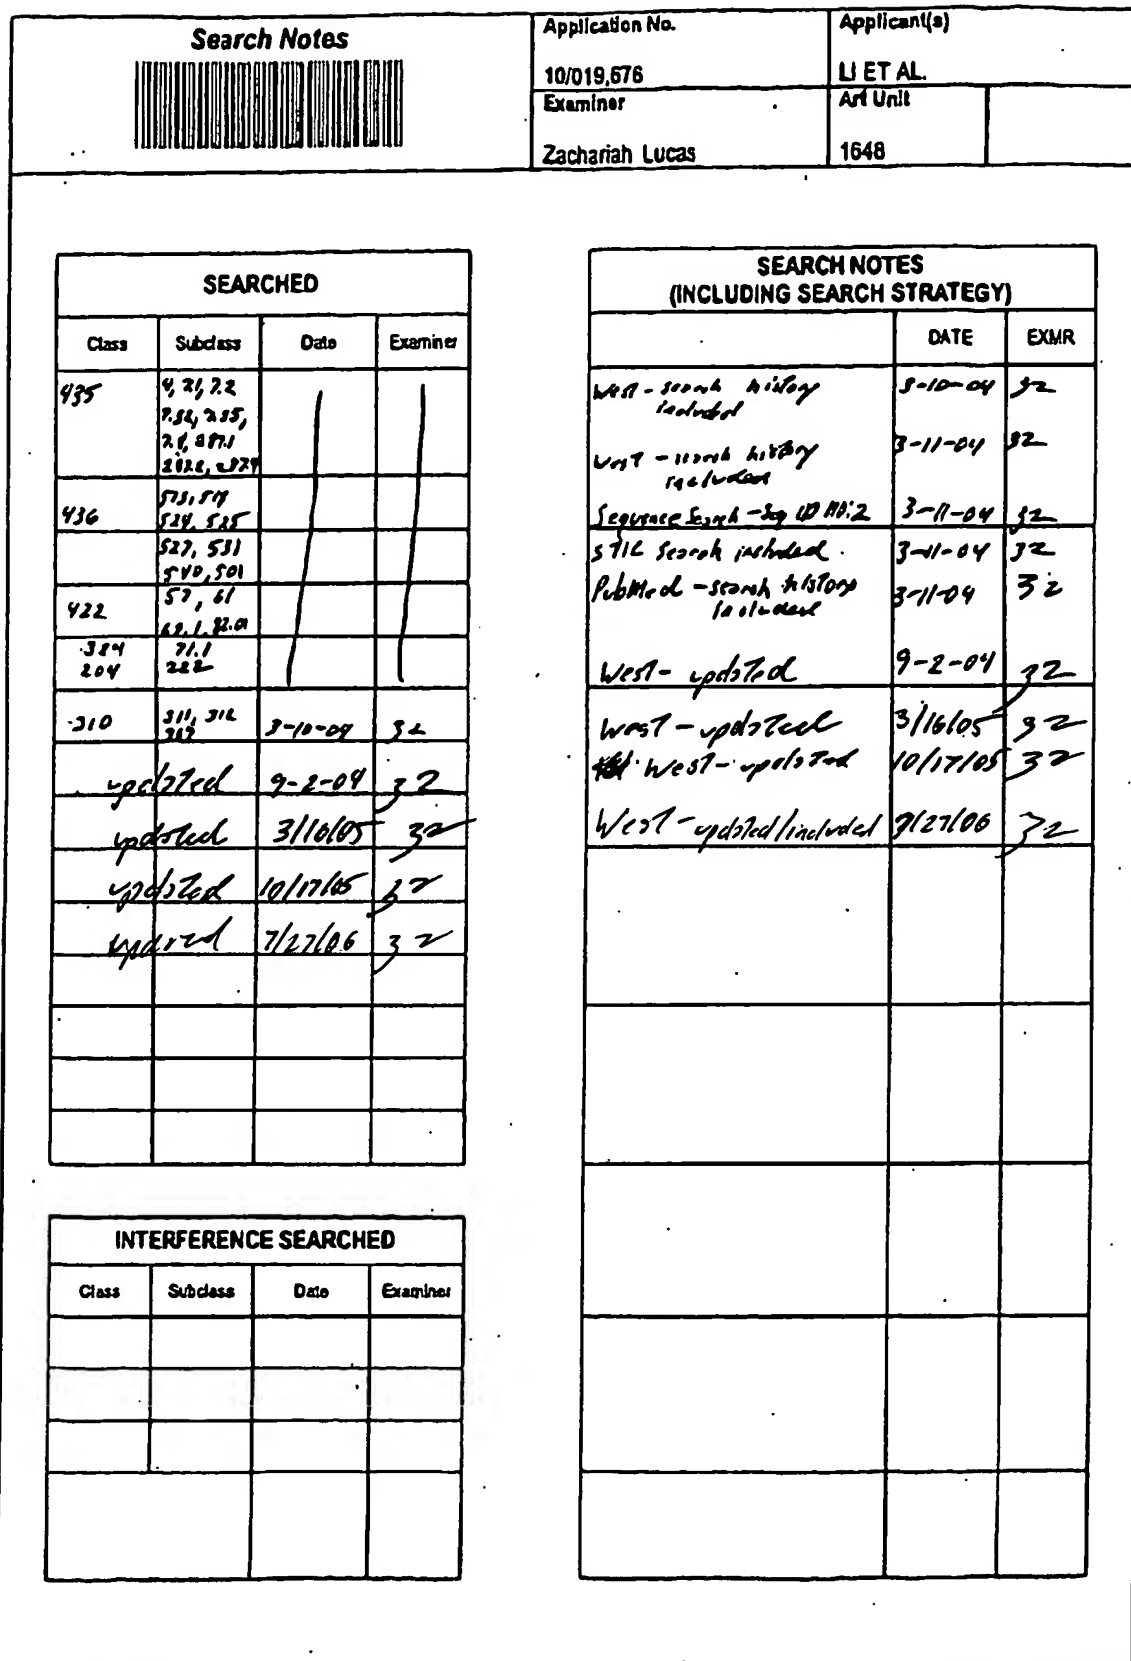 Search Notes
Application No.
10/019,676
Applicant(s)
LI ET AL.
Examiner
Zachariah Lucas
Art Unit
1648
SEARCHED
Class Subclass Date Examiner
435 4, 7.1, 7.2
7.32, 7.35,
287.1
436 518
524, 525
527, 531
540, 501
422 57, 61
204
222
310 311, 312 3-10-04 ZL
updated 9-2-04 ZL
updated 3/16/05 ZL
updated 10/17/05 ZL
updated 7/27/06 ZL
INTERFERENCE SEARCHED
Class Subclass Date Examiner
SEARCH NOTES
(INCLUDING SEARCH STRATEGY)
DATE EXMR
West - search history 3-10-04 ZL
included
West - search history 3-11-04 ZL
included
Sequence Search - Seq ID NO:2 3-11-04 ZL
STIC Search included 3-11-04 ZL
PubMed - search history 3-11-04 ZL
included
West - updated 9-2-04 ZL
West - updated 3/16/05 ZL
West - updated 10/17/05 ZL
West - updated/included 7/27/06 ZL